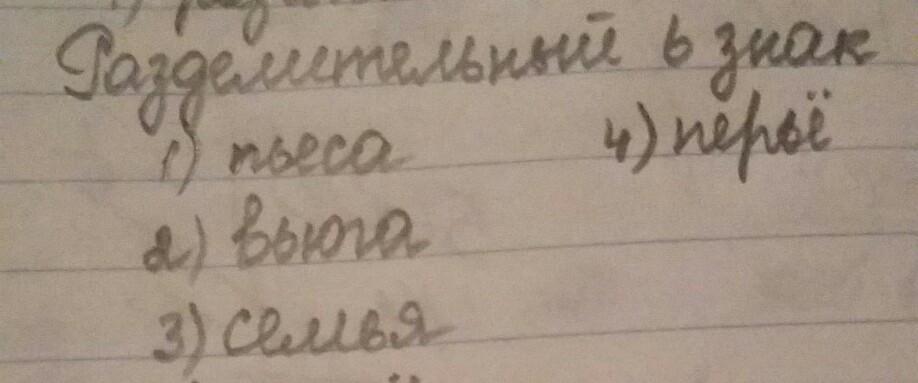 Разделительный ь знак
1) пьеса 4) перьё
2) вьюга
3) семья